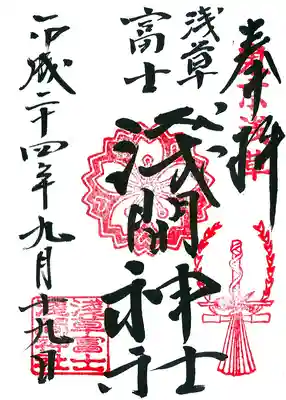 奉拝
浅草
富士
浅間神社
平成二十四年九月十九日
浅草富士
浅間神社